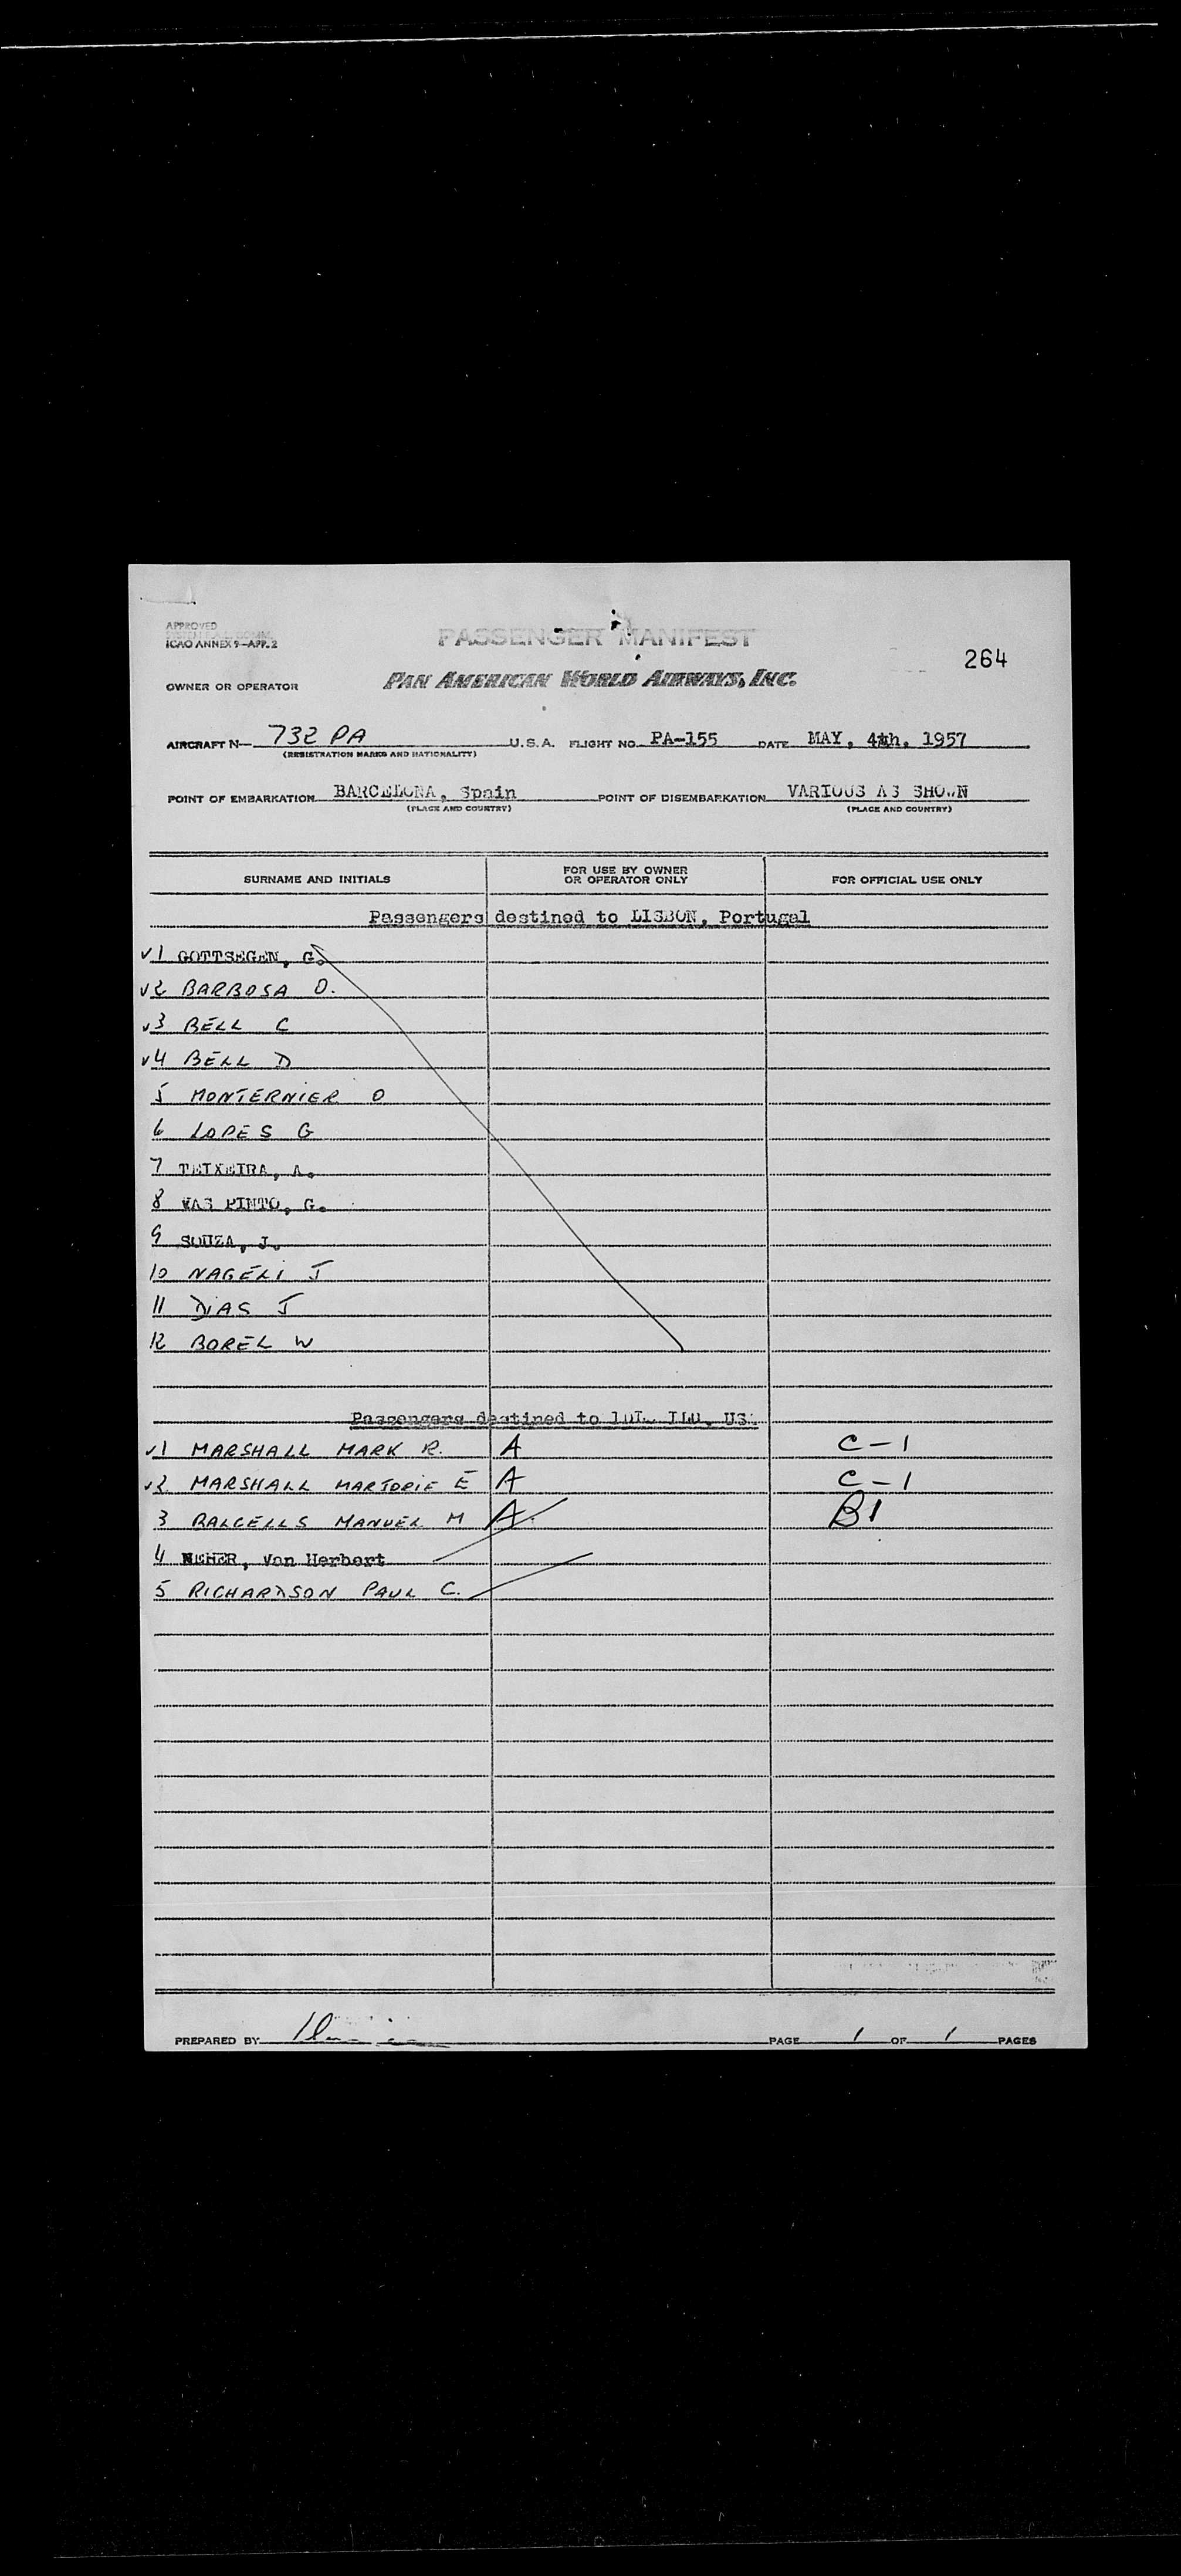 APPROVED
ICAO ANNEX 9—APP. 2
PASSENGER MANIFEST
264
OWNER OR OPERATOR
PAN AMERICAN WORLD AIRWAYS, INC.
AIRCRAFT N— 732 PA U.S.A. FLIGHT NO. PA-155 DATE MAY, 4th, 1957
(REGISTRATION MARKS AND NATIONALITY)
POINT OF EMBARKATION BARCELONA, Spain POINT OF DISEMBARKATION VARIOUS AS SHOWN
(PLACE AND COUNTRY) (PLACE AND COUNTRY)
SURNAME AND INITIALS FOR USE BY OWNER OR OPERATOR ONLY FOR OFFICIAL USE ONLY
Passengers destined to LISBON, Portugal
√1 GOTTSEGEN, G.
√2 BARBOSA O.
√3 BELL C
√4 BELL D
5 MONTERNIER O
6 LOPES G
7 TEIXEIRA, A.
8 VAS PINTO, G.
9 SOUZA, J.
10 NAGELI J
11 DIAS J
12 BOREL W
Passengers destined to
√1 MARSHALL MARK R. A C-1
√2 MARSHALL MARJORIE E A C-1
3 BALCELLS MANUEL M A B1
4 WEHER, Von Herbert
5 RICHARDSON PAUL C.
PREPARED BY PAGE 1 OF 1 PAGES